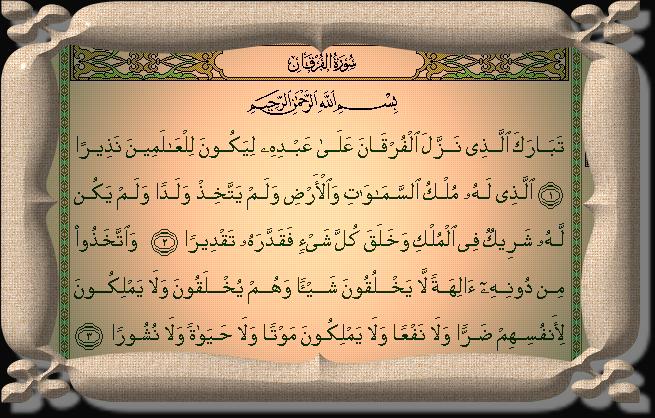 سُورَةُ الْفُرْقَانِ
بِسْمِ اللَّهِ الرَّحْمَٰنِ الرَّحِيمِ
تَبَارَكَ ٱلَّذِى نَزَّلَ ٱلْفُرْقَانَ عَلَىٰ عَبْدِهِۦ لِيَكُونَ لِلْعَـٰلَمِينَ نَذِيرًا
١ ٱلَّذِى لَهُۥ مُلْكُ ٱلسَّمَـٰوَٰتِ وَٱلْأَرْضِ وَلَمْ يَتَّخِذْ وَلَدًا وَلَمْ يَكُن
لَّهُۥ شَرِيكٌ فِى ٱلْمُلْكِ وَخَلَقَ كُلَّ شَىْءٍ فَقَدَّرَهُۥ تَقْدِيرًا ٢ وَٱتَّخَذُوا۟
مِن دُونِهِۦٓ ءَالِهَةً لَّا يَخْلُقُونَ شَيْـًٔا وَهُمْ يُخْلَقُونَ وَلَا يَمْلِكُونَ
لِأَنفُسِهِمْ ضَرًّا وَلَا نَفْعًا وَلَا يَمْلِكُونَ مَوْتًا وَلَا حَيَوٰةً وَلَا نُشُورًا ٣